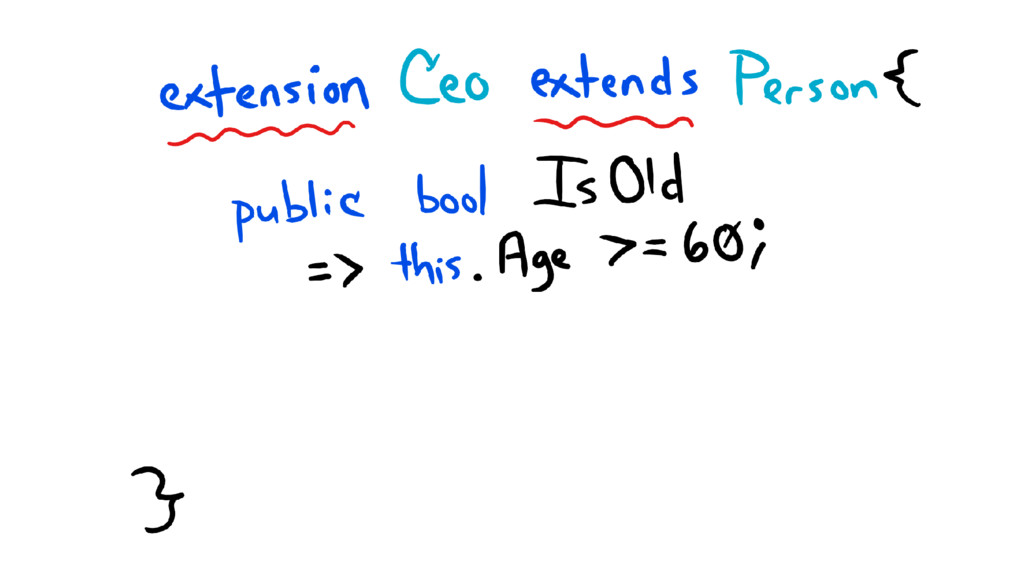 extension Ceo extends Person {
public bool IsOld
=> this.Age >= 60;
}